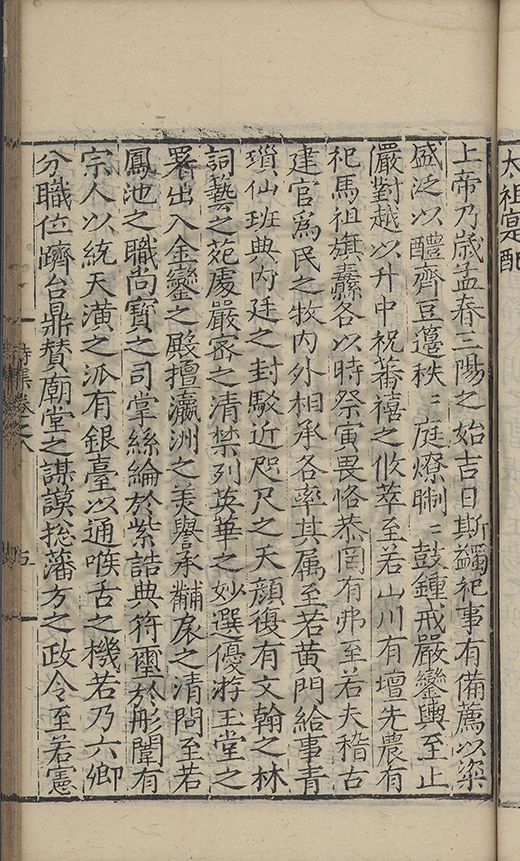 太祖寔配
上帝乃歲孟春三陽之始吉日斯蠲祀事有備薦以粢
盛泛以醴齊豆籩秩〻庭燎晣〻鼓鍾戒嚴鑾輿至止
儼對越以升中祝蕃禧之攸萃至若山川有壇先農有
祀馬祖旗纛各以時祭寅畏恪恭罔有弗至若夫稽古
建官爲民之牧內外相承各率其属至若黃門給事青
瑣仙班典內廷之封駁近咫尺之天顏復有文翰之林
詞藝之苑處嚴密之清禁列英華之妙選優游玉堂之
署出入金鑾之殿擅瀛洲之美譽承黼扆之清問至若
鳳池之職尚寶之司掌絲綸於紫誥典符璽於彤闈有
宗人以統天潢之派有銀臺以通喉舌之機若乃六卿
分職位躋台鼎賛廟堂之謀謨捴藩方之政令至若憲
詩集卷之八